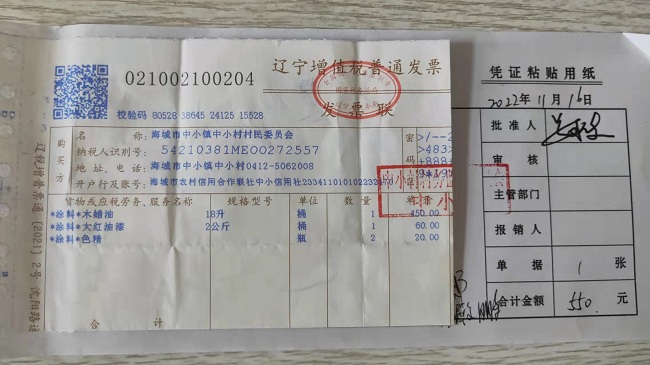 021002100204
辽宁增值税普通发票
发票联
校验码 80528 38645 24125 15528
购买方
名称：海城市中小镇中小村村民委员会
纳税人识别号：54210381ME00272557
地址、电话：海城市中小镇中小村0412-5062008
开户行及账号：海城市农村信用合作联社中小信用社
密
码
货物或应税劳务、服务名称 规格型号 单位 数量
*涂料*木蜡油 18升 桶 1 450.00
*涂料*大红油漆 2公斤 桶 1 60.00
*涂料*色精 瓶 2 20.00
合计
辽税增普票通（2021）2号
凭证粘贴用纸
2022年11月16日
批准人
审核
主管部门
报销人
单据 1 张
合计金额 550. 元